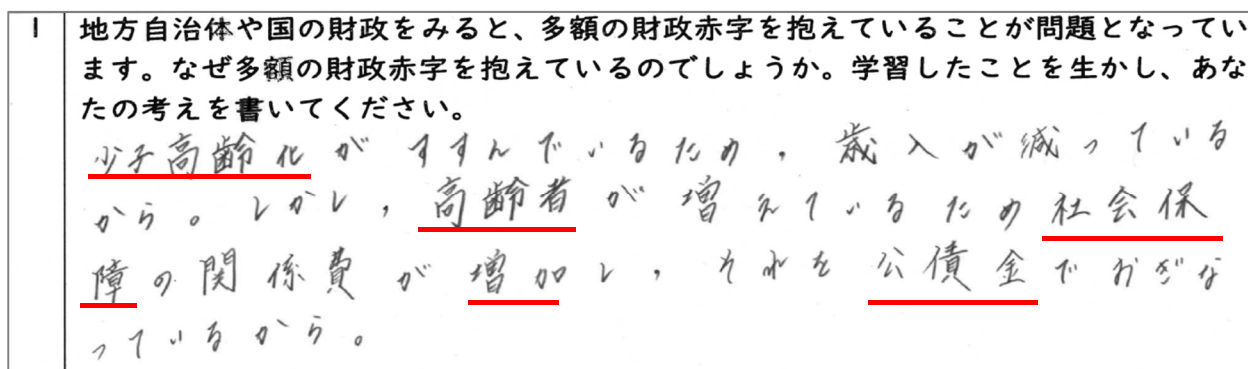 1
地方自治体や国の財政をみると、多額の財政赤字を抱えていることが問題となってい
ます。なぜ多額の財政赤字を抱えているのでしょうか。学習したことを生かし、あな
たの考えを書いてください。
少子高齢化がすすんでいるため、歳入が減っている
から。しかし、高齢者が増えているため社会保
障の関係費が増加し、それを公債金でおぎな
っているから。